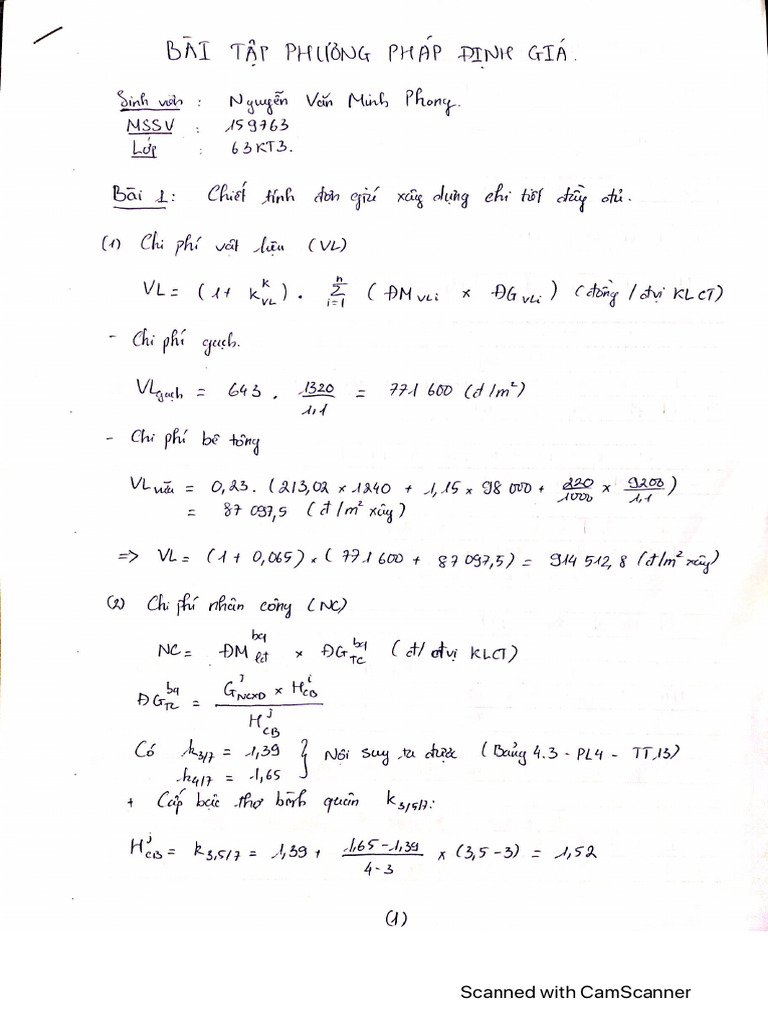 BÀI TẬP PHƯƠNG PHÁP ĐỊNH GIÁ.
Sinh viên : Nguyễn Văn Minh Phong.
MSSV : 159763
Lớp : 63KT3.
Bài 1: Chiết tính đơn giá xây dựng chi tiết đầy đủ.
(1) Chi phí vật liệu (VL)
VL = (1 + K^k_VL) . Σ^n_{i=1} (ĐM_VLi × ĐG_VLi) (đồng / đvị KLCT)
- Chi phí gạch.
VL_gạch = 643 . 1320/1,1 = 771 600 (đ/m²)
- Chi phí bê tông
VL_vữa = 0,23. (213,02 × 1240 + 1,15 × 98 000 + 220/1000 × 9200/1,1)
= 87 097,5 (đ/m² xây)
=> VL = (1 + 0,065) × (771 600 + 87 097,5) = 914 512,8 (đ/m² xây)
(2) Chi phí nhân công (NC)
NC = ĐM^bq_lđ × ĐG^bq_TC (đ/ đvị KLCT)
ĐG^bq_TC = G^j_NCXD × H^i_CB / H^j_CB
Có k3/7 = 1,39 } Nội suy ta được (Bảng 4.3 - PL4 - TT13)
k4/7 = 1,65
+ Cấp bậc thợ bình quân k3,5/7:
H^j_CB = k3,5/7 = 1,39 + (1,65 - 1,39)/(4-3) × (3,5 - 3) = 1,52
(1)
Scanned with CamScanner